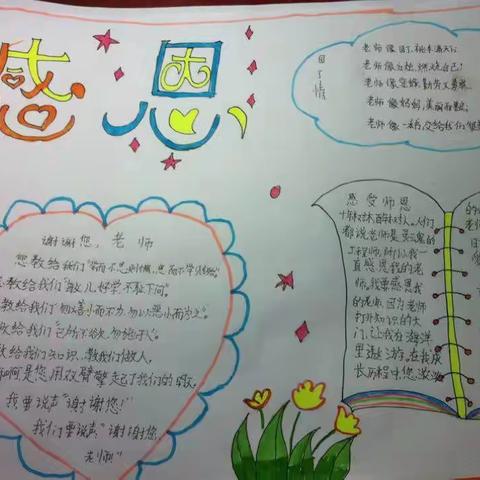 感恩
园丁情
老师像园丁,桃李满天下
老师像红烛,燃烧自己
老师像蜜蜂,勤劳又勇敢
老师像妈妈,美丽
老师像一
谢谢您,老师
您教给我们"学而不思则罔,思而不学则殆"。
教给我们"敏儿好学,不耻下问"。
教给我们"勿以善小而不为,勿以恶小而为之"。
教给我们"己所不欲,勿施于人"。
教给我们知识,教我们做人。
是您用双臂擎起了我们的
我要说声"谢谢您!"
我们要说声"谢谢您,
老师!"
感受师恩
十年树木百年树人。人们
都说老师是灵魂的
工程师,所以我一
直感恩我的老
师,我要感恩我
的老师,因为老师
打开知识的大
门,让我在海洋
里遨游,在我成
长历程中,您